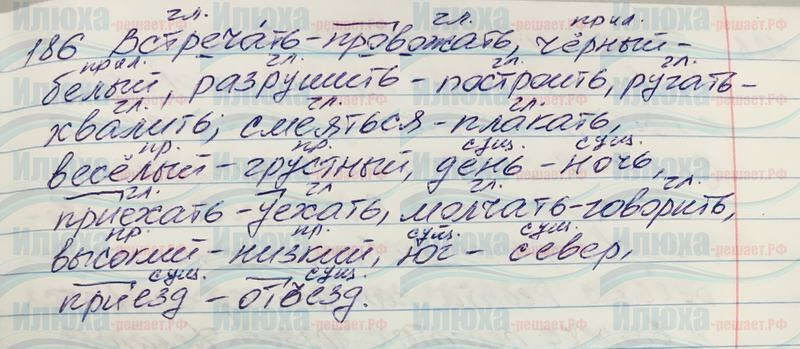 гл. гл. прил.
186 Встречать-провожать, чёрный-
прил. гл. гл. гл.
белый, разрушить - построить, ругать-
гл. гл. гл.
хвалить, смеяться - плакать,
пр. пр. сущ. сущ.
весёлый - грустный, день - ночь,
гл. гл гл. гл.
приехать - уехать, молчать-говорить,
пр. пр. сущ. сущ.
высокий - низкий, юг - север,
сущ. сущ.
приезд - отъезд.
Илюха-решает.РФ